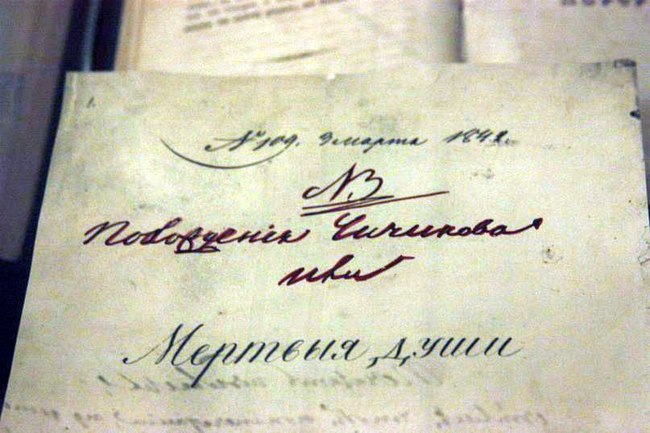 1.
№ 109. 9 марта 1842.
№3
Похожденія Чичикова
или
Мертвыя души